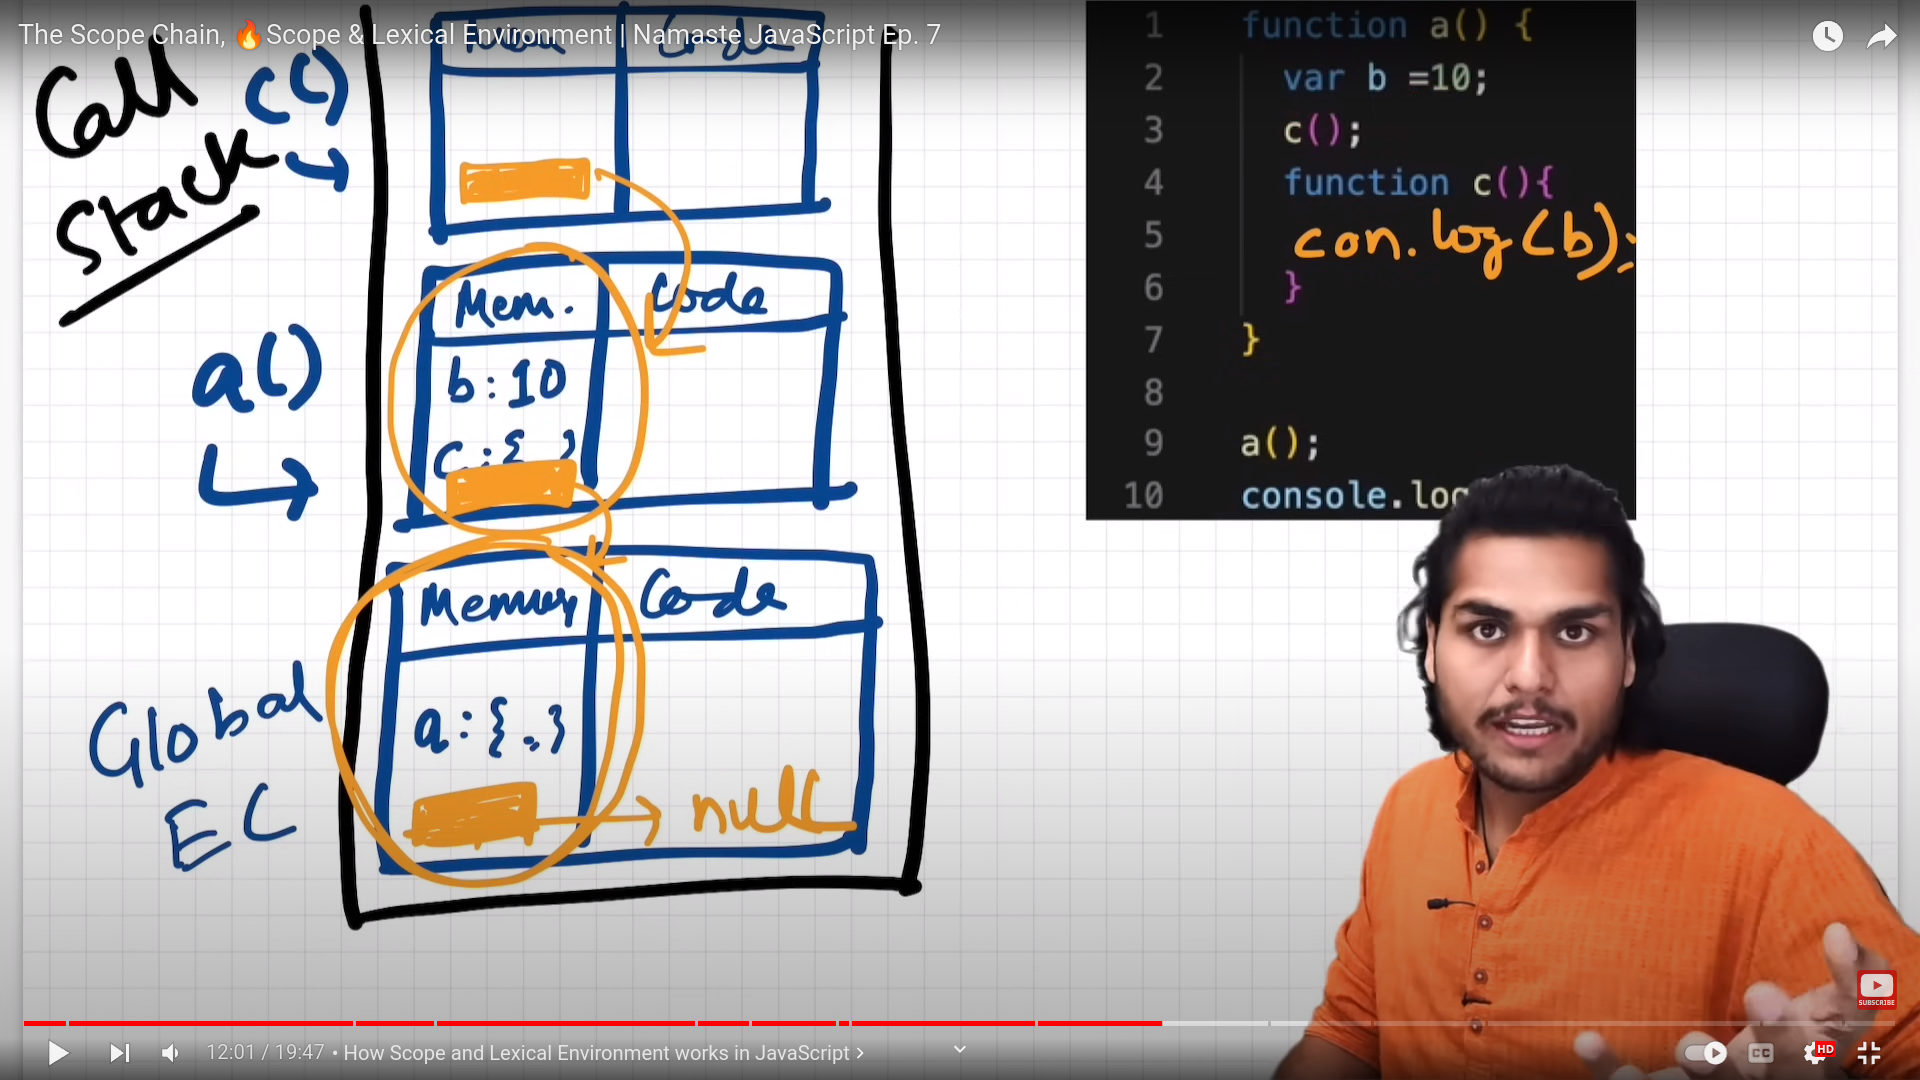 The Scope Chain, 🔥Scope & Lexical Environment | Namaste JavaScript Ep. 7
Call
Stack
c()
Code
Mem.
Code
b:10
c:{ }
a()
Memory
Code
a:{..}
null
Global
EC
1 function a() {
2 var b =10;
3 c();
4 function c(){
5 con.log(b);
6 }
7 }
8
9 a();
10 console.log
SUBSCRIBE
12:01 / 19:47 • How Scope and Lexical Environment works in JavaScript >
CC
HD